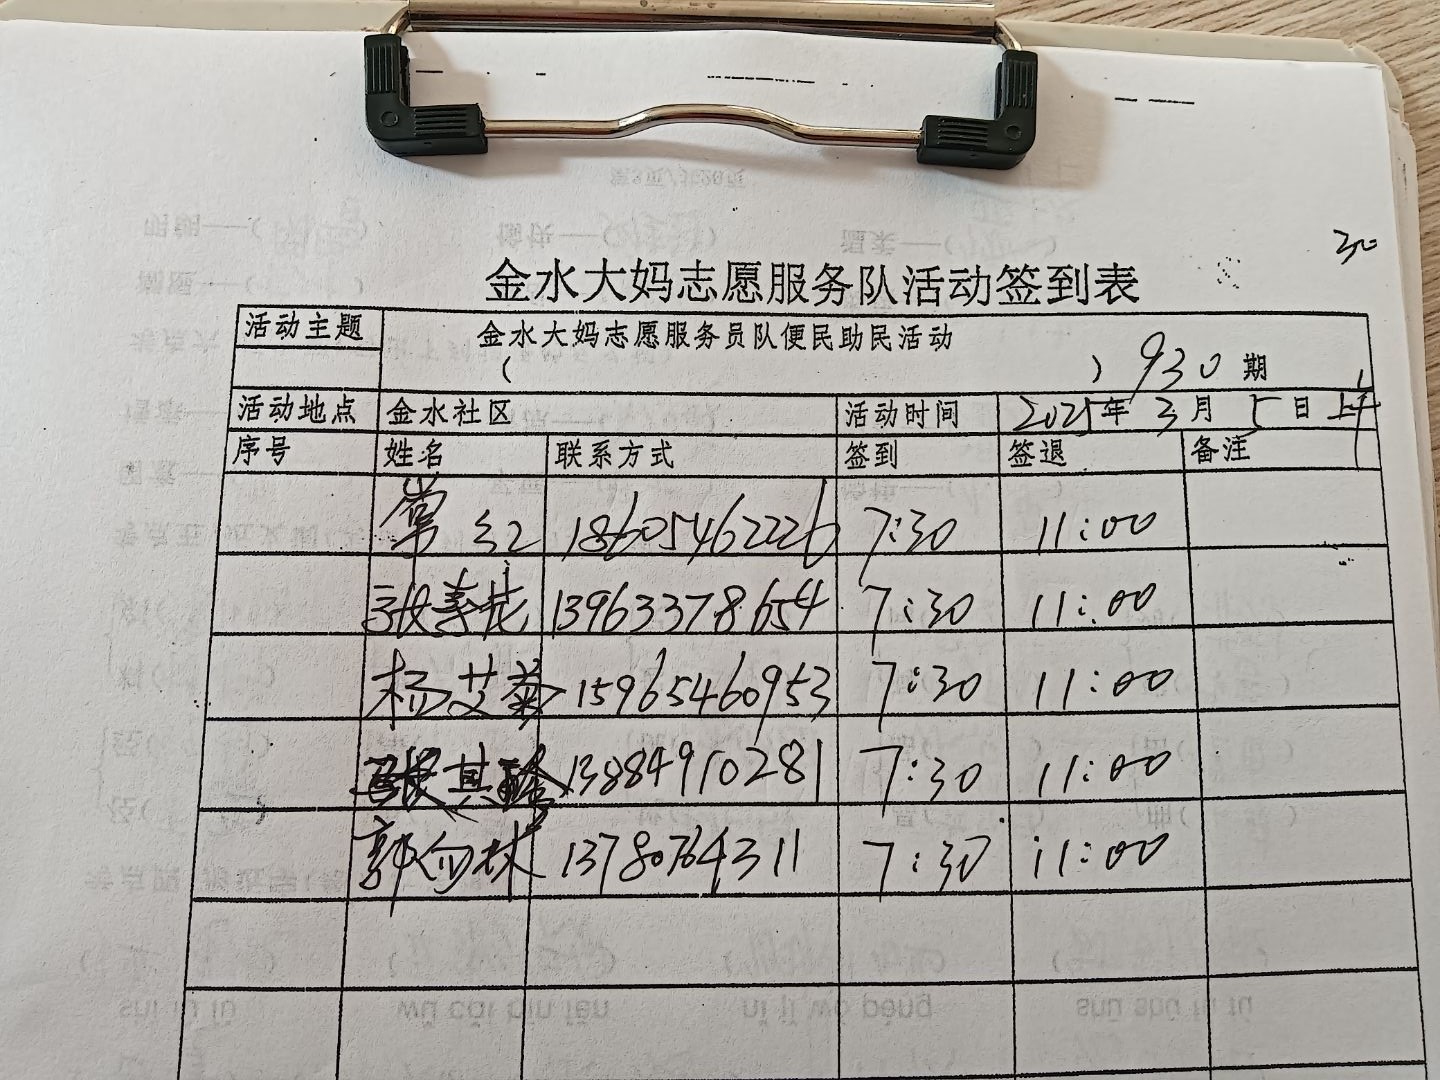 30
金水大妈志愿服务队活动签到表
活动主题 金水大妈志愿服务员队便民助民活动
( ) 930 期
活动地点 金水社区 活动时间 2025年3月5日上午
序号 姓名 联系方式 签到 签退 备注
常红 18605462226 7:30 11:00
张善花 13963378654 7:30 11:00
杨艾菊 15965460953 7:30 11:00
张其 13884910281 7:30 11:00
郭向林 13780764311 7:30 11:00